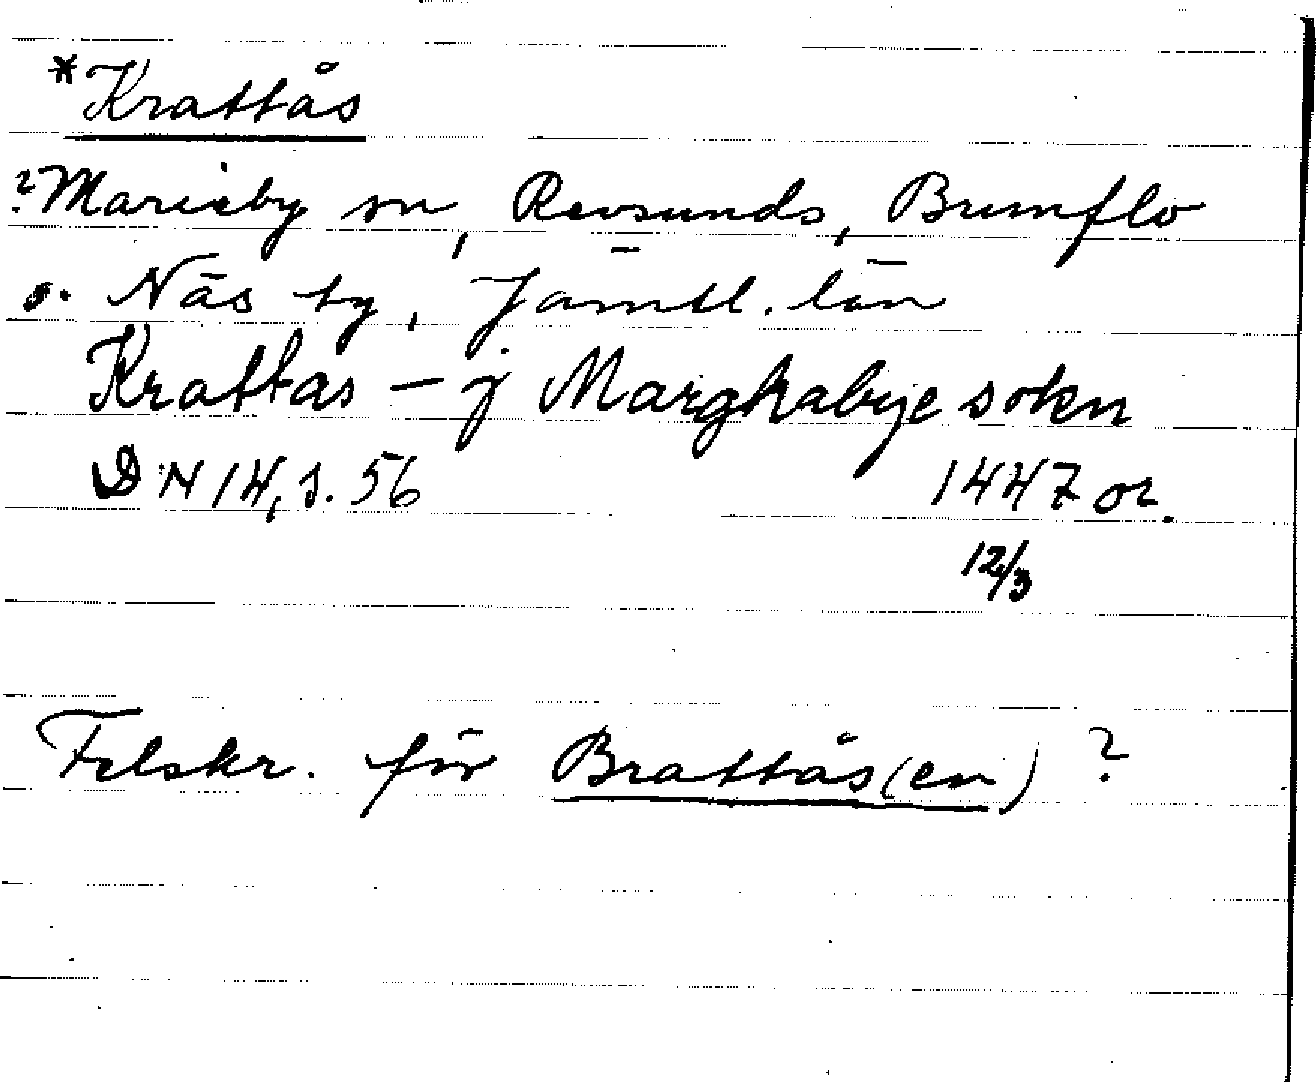 *Krattås
?Marieby sn, Revsunds, Brunflo
o. Näs tg, Jämtl. län
Krattas – j Marghabyje sokn
DN 14, s. 56 1447 or.
12/3
Felskr. för Brattås(en) ?